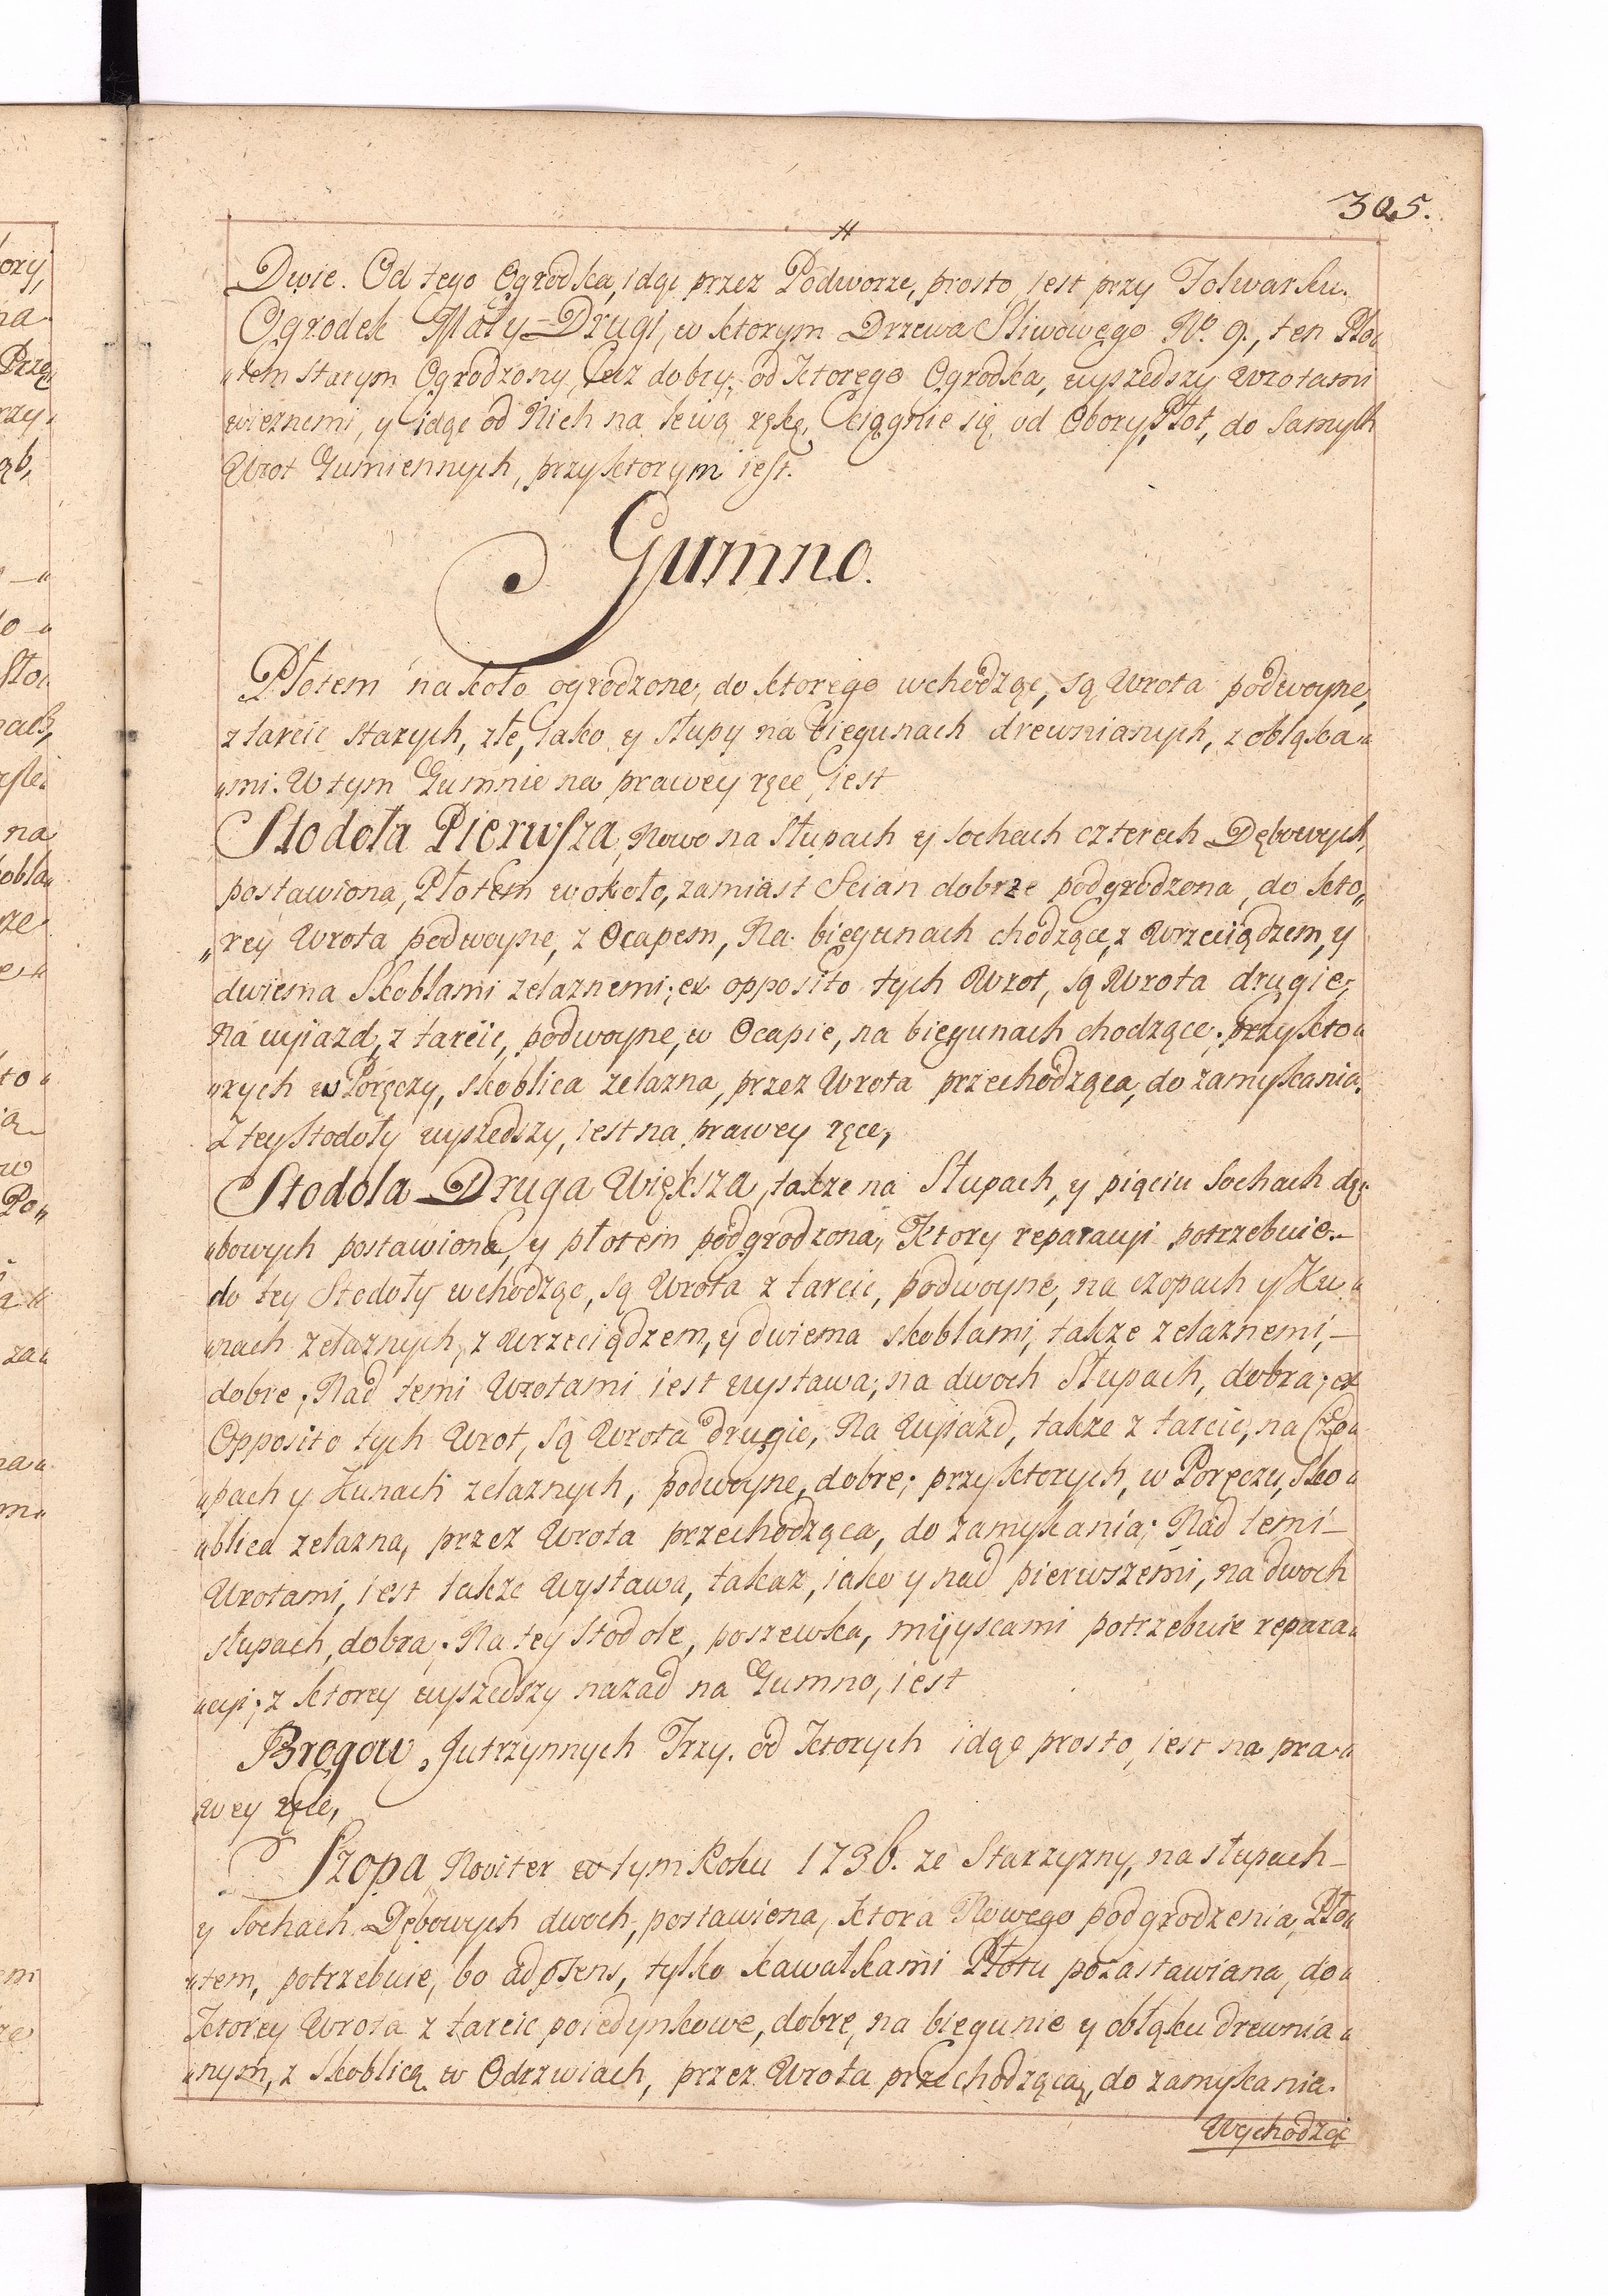 305.
Dwie. Od tego Ogrodka, idąc przez Podworze, prosto, jest przy Folwarku.
Ogrodek Mały Drugi, w ktorym Drzewa Sliwowego No. 9., ten Pło„
„tem starym Ogrodzony, lecz dobry; od ktorego Ogrodka, wyszedszy Wrotami
wieznemi, y idąc od Nich na lewą rękę, Ciągnie się od Obory, Płot, do samych
Wrot Gumiennych, przy ktorym iest.
Gumno.
Płotem na koło ogrodzone, do ktorego wchodząc, są Wrota podwoyne,
z tarcic starych, złe, iako y słupy na biegunach drewnianych, z obłąka„
„mi. W tym Gumnie na prawey ręce, jest
Stodoła Pierwsza, Nowo na Słupach y sochach czterech Dębowych,
postawiona, Płotem wokoło, zamiast Scian dobrze podgrodzona, do kto„
„rey Wrota podwoyne, z Ocapem, Na biegunach chodzące, z Wrzeciądzem, y
dwiema Skoblami zelaznemi; ex opposito tych Wrot, są Wrota drugie,
Na wyiazd, z tarcic, podwoyne, w Ocapie, na biegunach chodzące; przy kto„
„rych w Poręczy, skoblica zelazna, przez Wrota przechodząca, do zamykania.
Z tey stodoły wyszedszy, iest na prawey ręce,
Stodola Druga Większa, takze na Słupach, y pięciu sochach dę„
„bowych postawiona, y płotem podgrodzona, Ktory reparacyi potrzebuie.
do tey Stodoły wchodząc, są Wrota z tarcic, podwoyne, na czopach y Ku„
„nach zelaznych, z Wrzeciądzem, y dwiema skoblami, takze zelaznemi,
dobre; Nad temi Wrotami iest wystawa, na dwoch Słupach, dobra; ex
Opposito tych Wrot, są Wrota drugie, Na Wyiazd, takze z tarcic, na Czo„
„pach y Kunach zelaznych, podwoyne, dobre; przy ktorych, w Poręczy, sko„
„blica zelazna, przez Wrota przechodząca, do zamykania; Nad temi
Wrotami, iest takze Wystawa, takaz, iako y nad pierwszemi, na dwoch
słupach, dobra; Na tey Stodole, poszewka, mieyscami potrzebuie repara„
„cyi; z ktorey wyszedszy nazad na Gumno, iest
Brogow Jutrzynnych Trzy. od Ktorych idąc prosto, iest na pra„
„wey ręce,
Szopa Noviter w tym Roku 1736. ze Starzyzny, na słupach
y sochach Dębowych dwoch, postawiona, ktora Nowego podgrodzenia, Pło„
„tem, potrzebuie, bo ad praesens, tylko kawałkami Płotu pozastawiana, do
Ktorey Wrota z tarcic poiedynkowe, dobre, na biegunie y obłąku drewnia„
„nym, z Skoblicą w Odrzwiach, przez Wrota przechodzącą, do zamykania.
Wychodząc